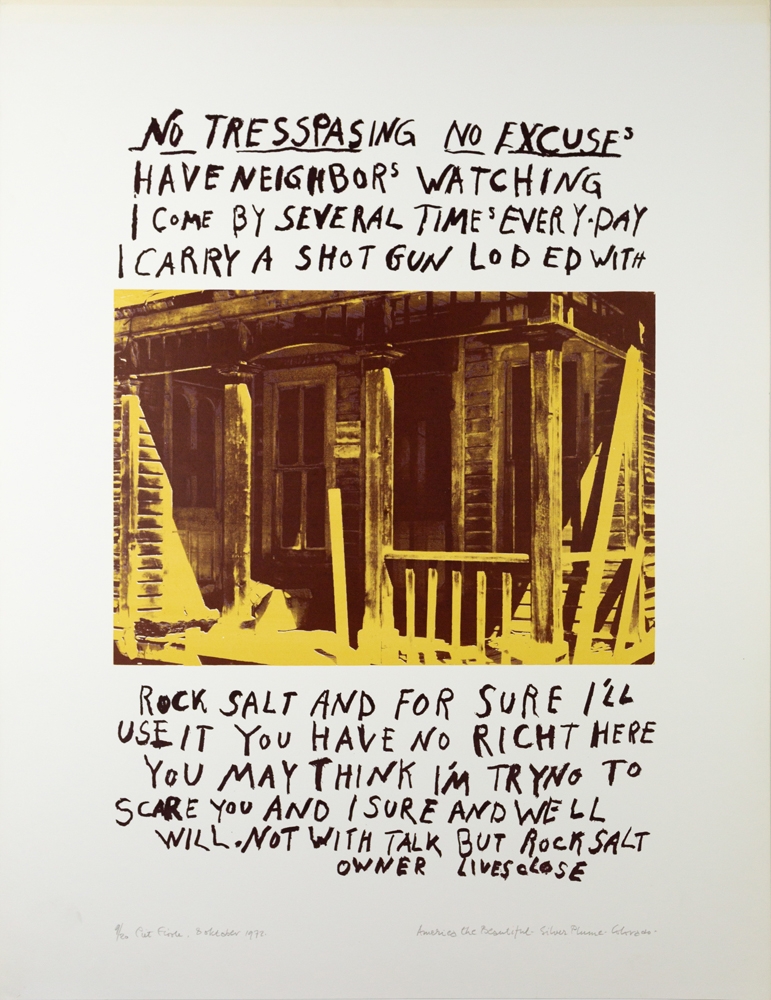 NO TRESSPASING NO EXCUSES
HAVE NEIGHBORS WATCHING
I COME BY SEVERAL TIMES EVERY·DAY
I CARRY A SHOT GUN LODED WITH
ROCK SALT AND FOR SURE I'LL
USE IT YOU HAVE NO RIGHT HERE
YOU MAY THINK I'M TRYNG TO
SCARE YOU AND I SURE AND WELL
WILL. NOT WITH TALK BUT ROCK SALT
OWNER LIVES CLOSE
America the Beautiful - Silver Plume - Colorado -